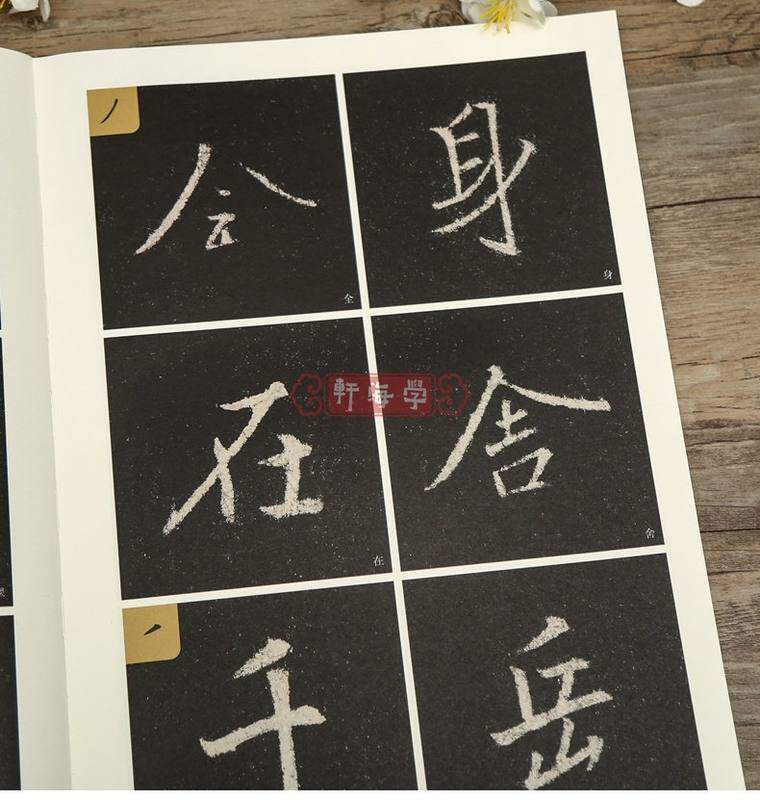 全 身
全 身
在 舍
在 舍
學海軒
千 岳